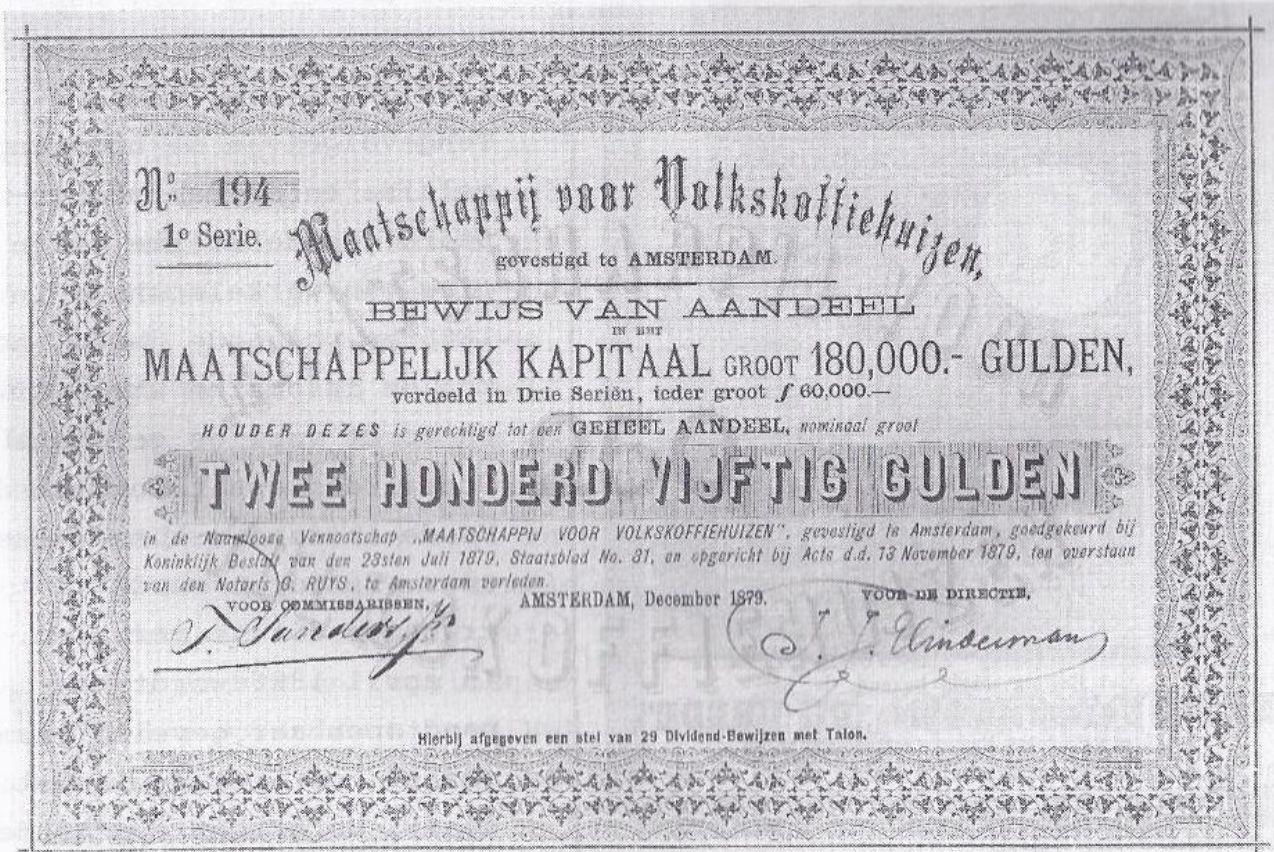 Nº 194
1e Serie.
Maatschappij voor Volkskoffiehuizen,
gevestigd te AMSTERDAM.
BEWIJS VAN AANDEEL
IN HET
MAATSCHAPPELIJK KAPITAAL GROOT 180,000.- GULDEN,
verdeeld in Drie Seriën, ieder groot ƒ 60,000.—
HOUDER DEZES is gerechtigd tot een GEHEEL AANDEEL, nominaal groot
TWEE HONDERD VIJFTIG GULDEN
in de Naamlooze Vennootschap „MAATSCHAPPIJ VOOR VOLKSKOFFIEHUIZEN", gevestigd te Amsterdam, goedgekeurd bij
Koninklijk Besluit van den 23sten Juli 1879, Staatsblad No. 31, en opgericht bij Acte d.d. 13 November 1879, ten overstaan
van den Notaris G. RUYS, te Amsterdam verleden.
VOOR COMMISSARISSEN, AMSTERDAM, December 1879. VOOR DE DIRECTIE,
Sanders, Jr.
Hierbij afgegeven een stel van 29 Dividend-Bewijzen met Talon.